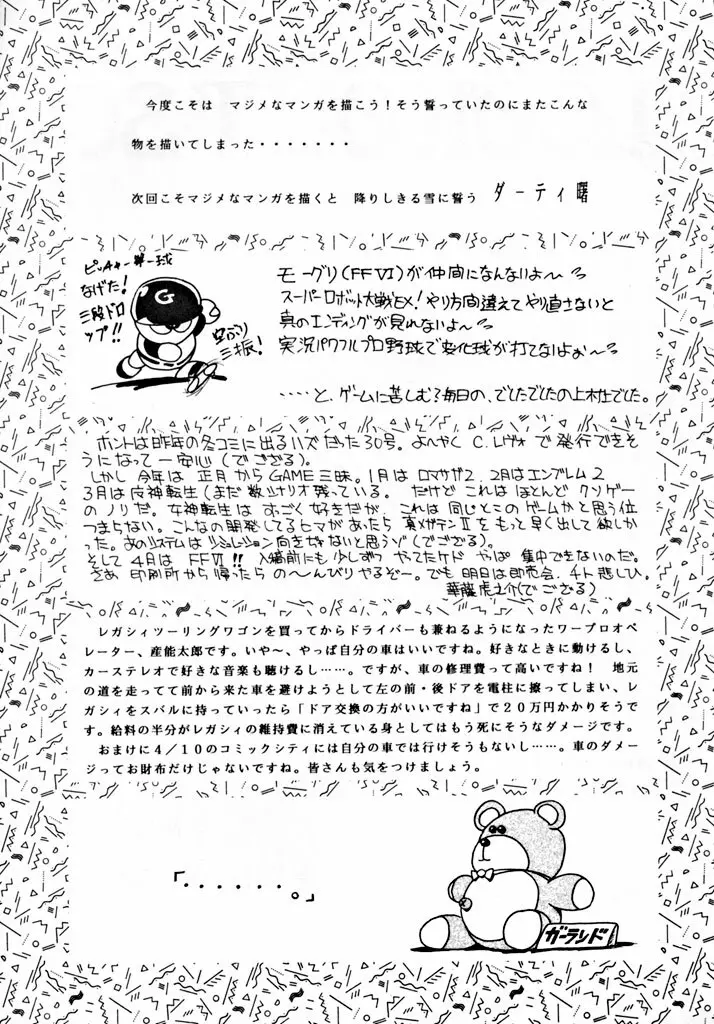 今度こそは マジメなマンガを描こう！そう誓っていたのにまたこんな
物を描いてしまった・・・・・・・
次回こそマジメなマンガを描くと 降りしきる雪に誓う ダーティ曙
ピッチャー第一球
なげた！
三段ドロ
ップ!!
G
空ぶり
三振！
モーグリ(FFⅥ)が仲間になんないよ〜
スーパーロボット大戦EX！やり方間違えてやり直さないと
真のエンディングが見れないよ〜
実況パワフルプロ野球で変化球が打てないよぉ〜
‥‥と、ゲームに苦しむ毎日の、でたでたの上木でした。
ホントは昨年の冬コミに出るハズだった30号。よーやく C.レヴォ で発行できそ
うになって一安心(でござる)。
しかし 今年は 正月からGAME三昧。1月は ロマサガ2、2月はエンブレム2
3月は女神転生(まだ数シナリオ残っている。 だけど これは ほとんど クソゲー
のノリだ。女神転生は すごく好きだが、これは同じとこのゲームかと思う位
つまらない。こんなの開発してるヒマがあったら 真メガテンⅡを もっと早く出して欲しか
った。あのシステムは シミュレーション向きぢゃないと思うゾ(でござる)。
そして 4月は FFⅥ!! 入稿前にも少しずつ やってたケド やっぱ 集中できないのだ。
さあ 印刷所から帰ったら の〜んびりやるぞー。でも 明日は即売会、チト悲しひ。
華龍虎之介(でござる)
レガシィツーリングワゴンを買ってからドライバーも兼ねるようになったワープロオペ
レーター、産能太郎です。いや〜、やっぱ自分の車はいいですね。好きなときに動けるし、
カーステレオで好きな音楽も聴けるし……。ですが、車の修理費って高いですね！ 地元
の道を走ってて前から来た車を避けようとして左の前・後ドアを電柱に擦ってしまい、レ
ガシィをスバルに持っていったら「ドア交換の方がいいですね」で２０万円かかりそうで
す。給料の半分がレガシィの維持費に消えている身としてはもう死にそうなダメージです。
おまけに４／１０のコミックシティには自分の車では行けそうもないし……。車のダメー
ジってお財布だけじゃないですね。皆さんも気をつけましょう。
「・・・・・・。」
ガーランド